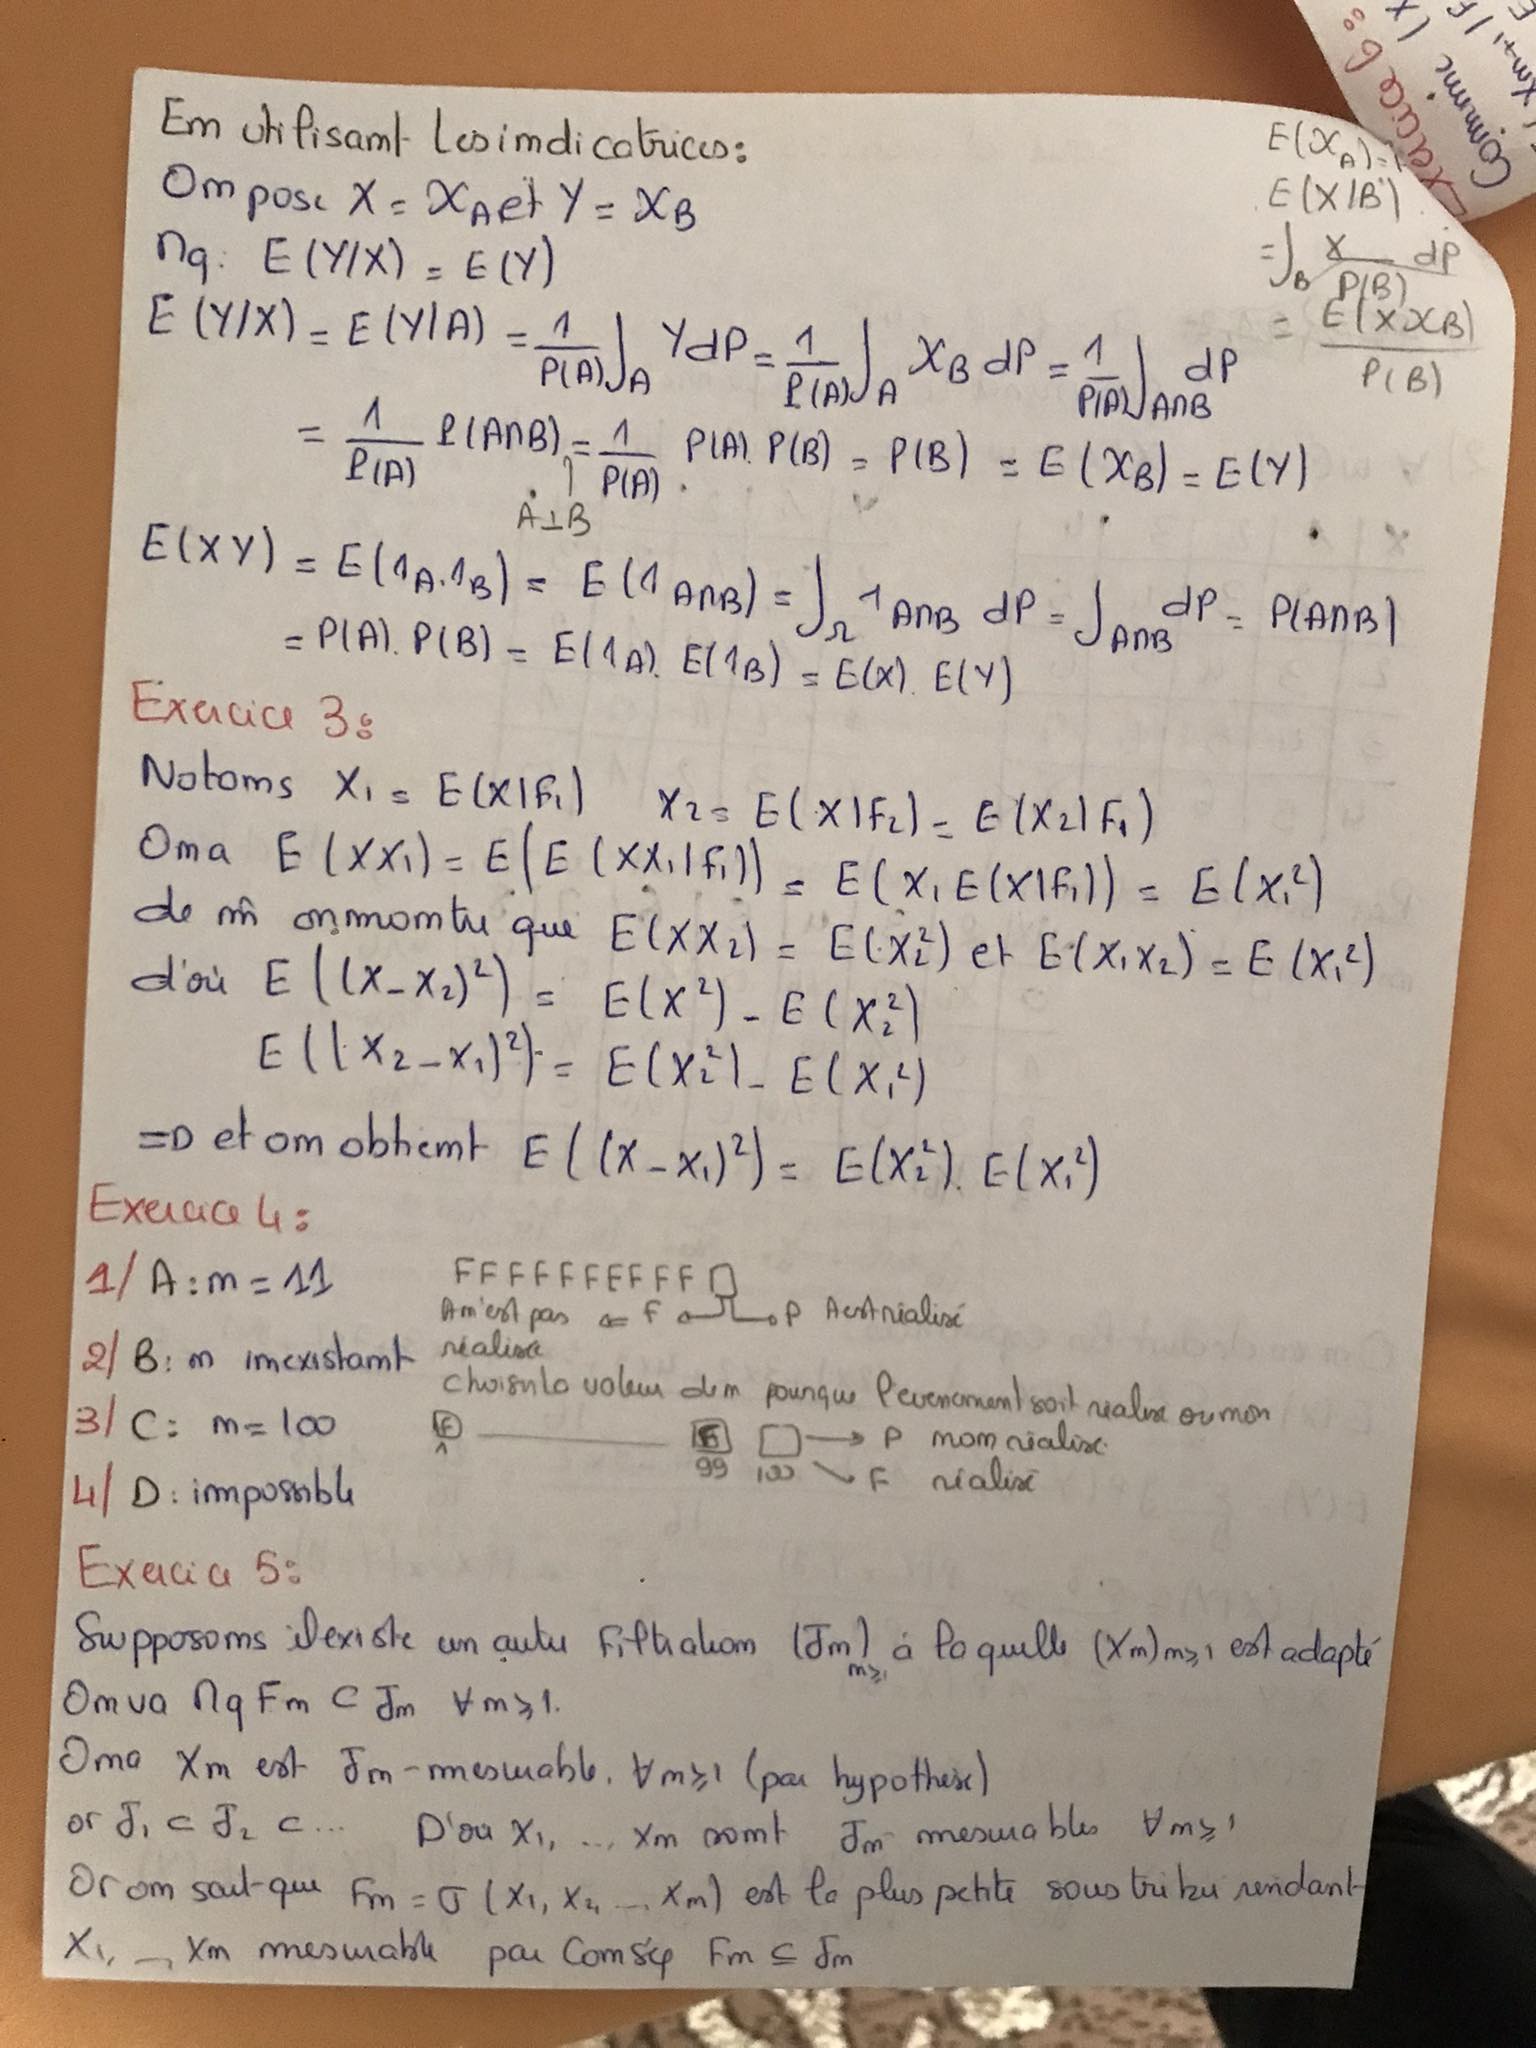 Em utilisamt les imdicatrices:
Om pose X = χA et Y = χB
Mq: E(Y/X) = E(Y)
E(Y/X) = E(Y|A) = 1/P(A) ∫A Y dP = 1/P(A) ∫A χB dP = 1/P(A) ∫A∩B dP
= 1/P(A) P(A∩B) = 1/P(A) P(A). P(B) = P(B) = E(χB) = E(Y)
↑
A⊥B
E(XY) = E(1A.1B) = E(1A∩B) = ∫Ω 1A∩B dP = ∫A∩B dP = P(A∩B)
= P(A). P(B) = E(1A). E(1B) = E(X). E(Y)
E(χA) =
E(X|B)
= ∫B X/P(B) dP
= E(X χB)/P(B)
Exercice 3:
Notoms X1 = E(X|F1) X2 = E(X|F2) = E(X2|F1)
Oma E(XX1) = E(E(XX1|F1)) = E(X1 E(X|F1)) = E(X1²)
de m̂ onmomtre que E(XX2) = E(X2²) et E(X1X2) = E(X1²)
d'où E((X-X2)²) = E(X²) - E(X2²)
E((X2-X1)²) = E(X2²) - E(X1²)
=D et om obtiemt E((X-X1)²) = E(X2²). E(X1²)
Exercice 4:
1/ A: m = 11
F F F F F F F F F F □
A m'est pas ⇐ F ← → P A est réalisé
réalisé
2/ B: m imexistamt
choisir la valeur de m pour que l'evenement soit réalisé ou mon
3/ C: m = 100
F 1 ——— F 99 □ 100 → P mom réalisé
↘ F réalisé
4/ D: impossible
Exercice 5:
Supposoms il existe un autre Filtratiom (Jm)m≥1 à laquelle (Xm)m≥1 est adapté
Om va Mq Fm ⊂ Jm ∀m≥1.
Oma Xm est Jm-mesurable, ∀m≥1 (par hypothèse)
or J1 ⊂ J2 ⊂ ... D'où X1, ... Xm somt Jm mesurables ∀m≥1
Or om sait que Fm = σ(X1, X2, ..., Xm) est la plus petite sous tribu rendant
X1, ..., Xm mesurable par Comséq Fm ⊆ Jm
Exercice 6:
Comme (X